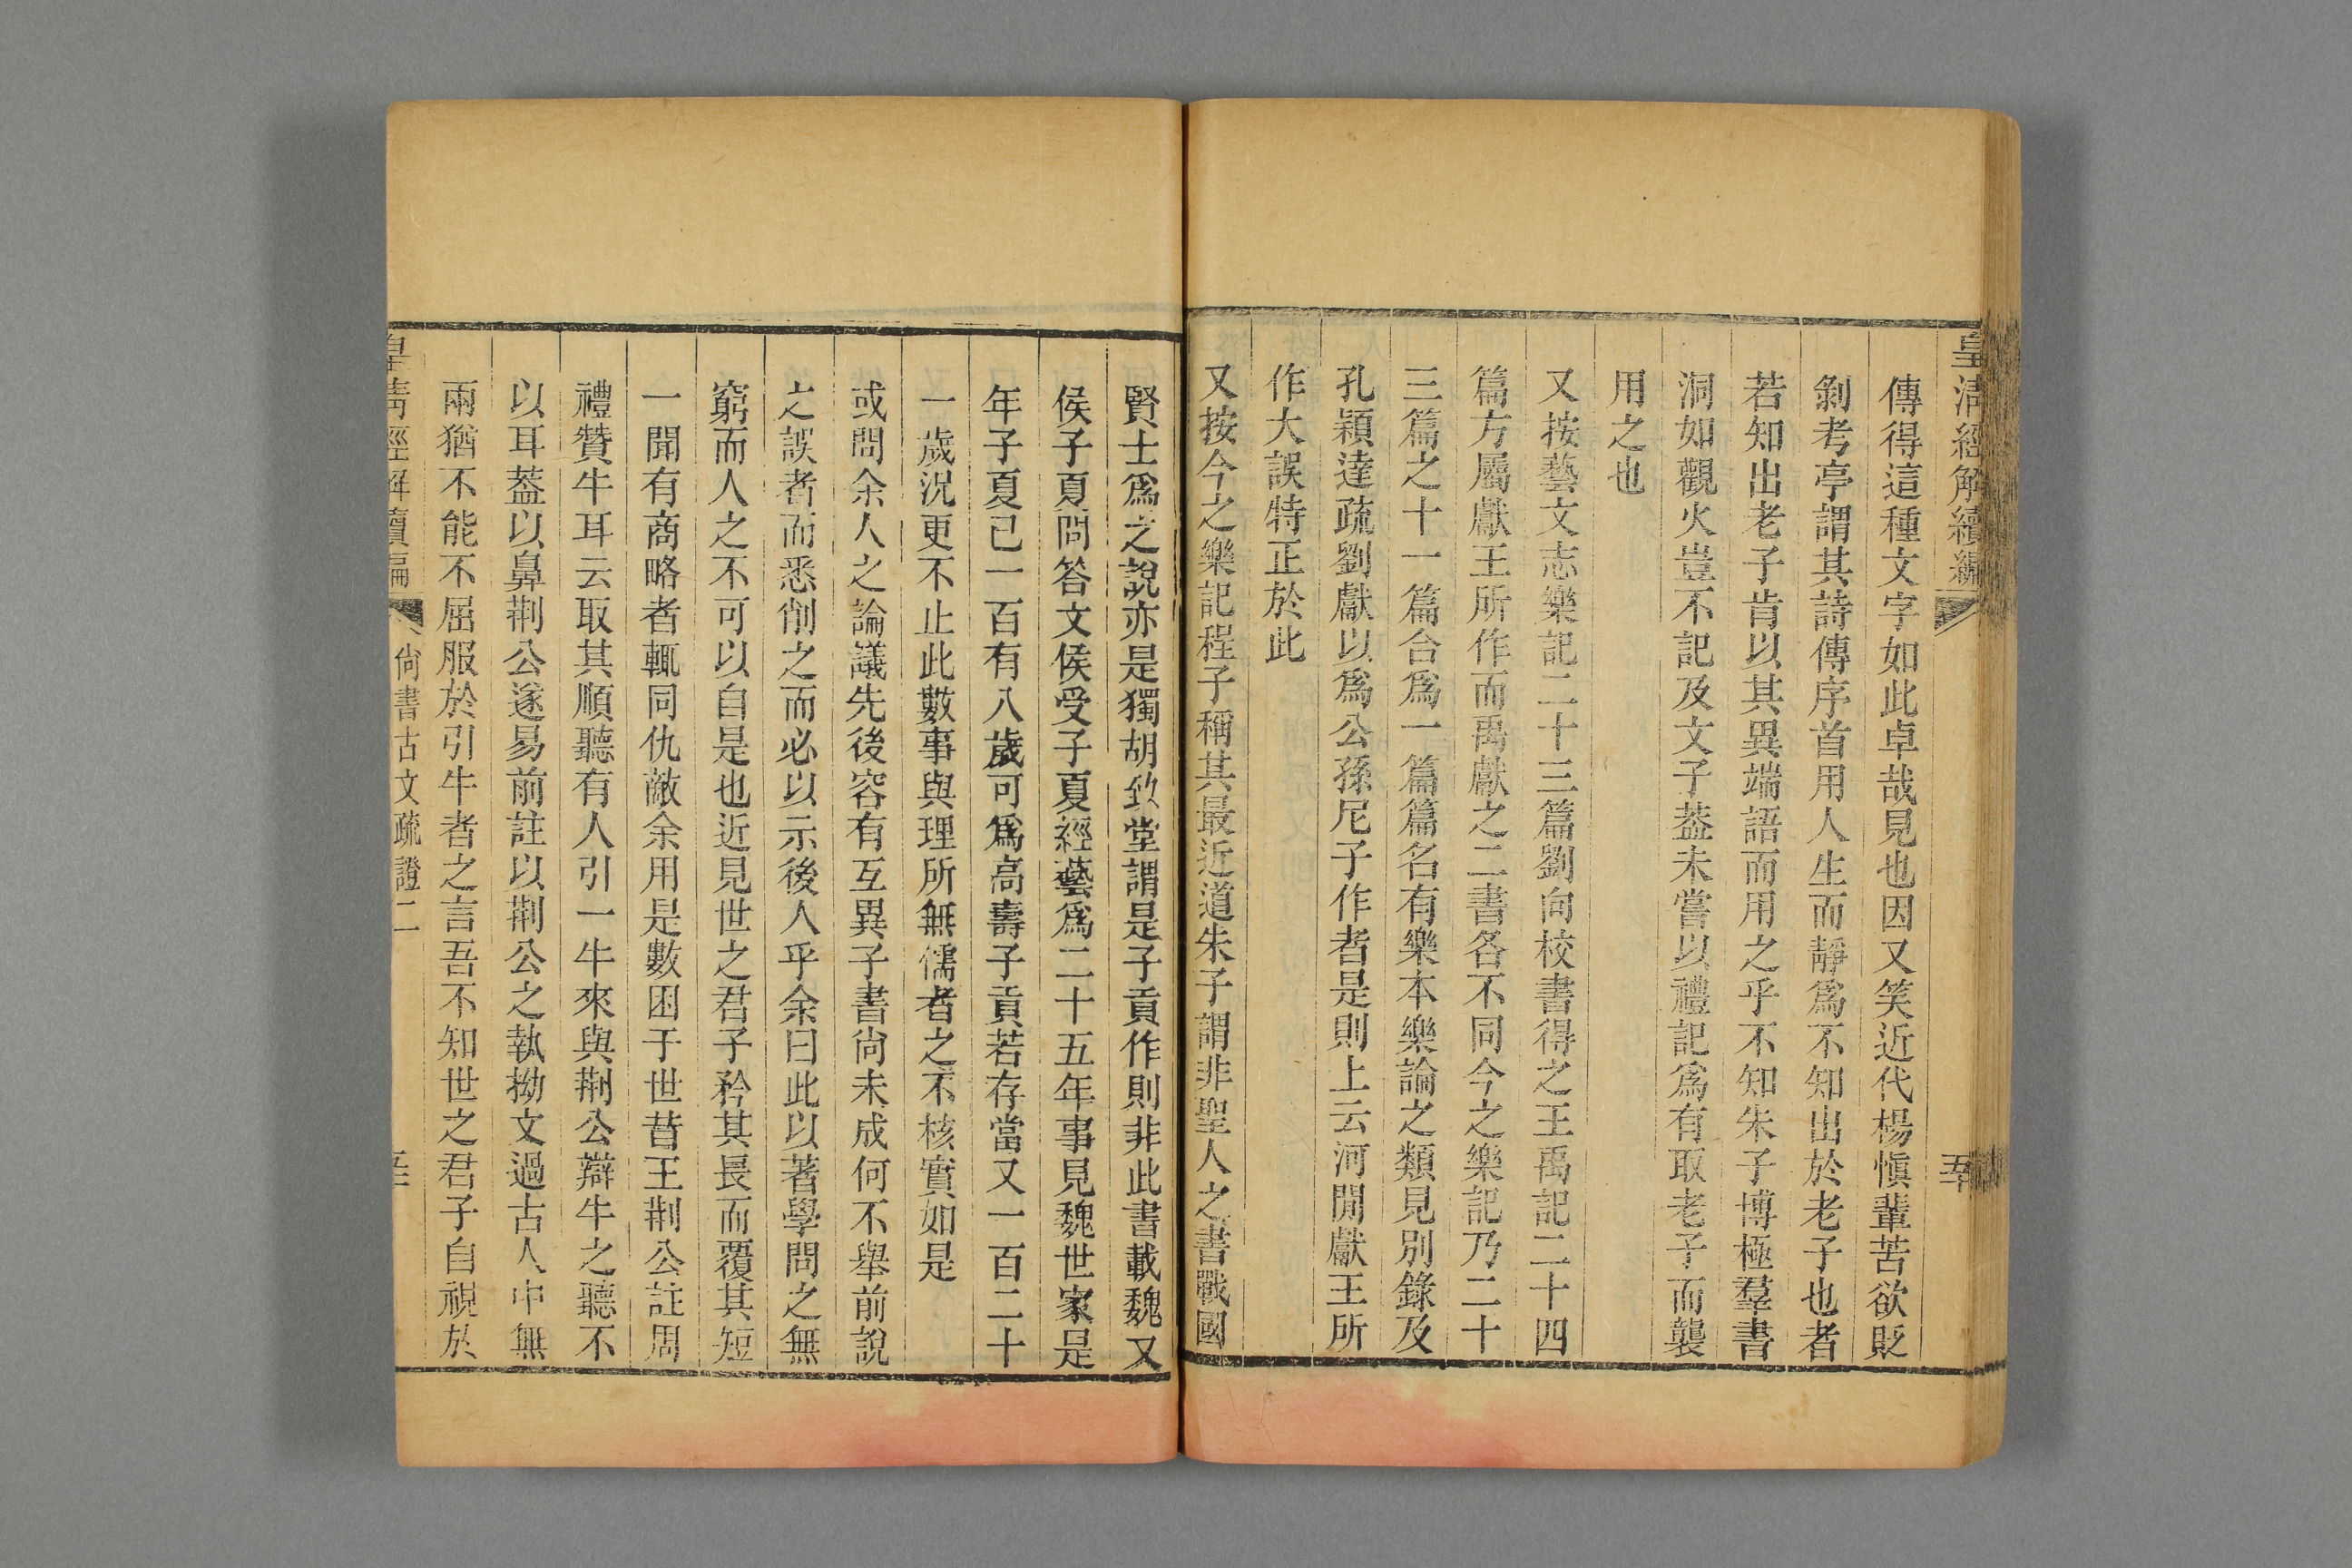 皇清經解續編
五十
傳得這種文字如此卓哉見也因又笑近代楊愼輩苦欲貶
剝考亭謂其詩傳序首用人生而靜爲不知出於老子也者
若知出老子肯以其異端語而用之乎不知朱子博極羣書
洞如觀火豈不記及文子葢未嘗以禮記爲有取老子而襲
用之也
又按藝文志樂記二十三篇劉向校書得之王禹記二十四
篇方屬獻王所作而禹獻之二書各不同今之樂記乃二十
三篇之十一篇合爲一篇篇名有樂本樂論之類見別錄及
孔穎達疏劉獻以爲公孫尼子作者是則上云河閒獻王所
作大誤特正於此
又按今之樂記程子稱其最近道朱子謂非聖人之書戰國
賢士爲之說亦是獨胡致堂謂是子貢作則非此書載魏文
侯子夏問答文侯受子夏經藝爲二十五年事見魏世家是
年子夏已一百有八歲可爲高壽子貢若存當又一百二十
一歲況更不止此數事與理所無儒者之不核實如是
或問余人之論議先後容有互異子書尙未成何不舉前說
之誤者而悉削之而必以示後人乎余曰此以著學問之無
窮而人之不可以自是也近見世之君子矜其長而覆其短
一聞有商略者輒同仇敵余用是數困于世昔王荆公註周
禮贊牛耳云取其順聽有人引一牛來與荆公辯牛之聽不
以耳葢以鼻荆公遂易前註以荆公之執拗文過古人中無
兩猶不能不屈服於引牛者之言吾不知世之君子自視於
皇清經解續編
尙書古文疏證二